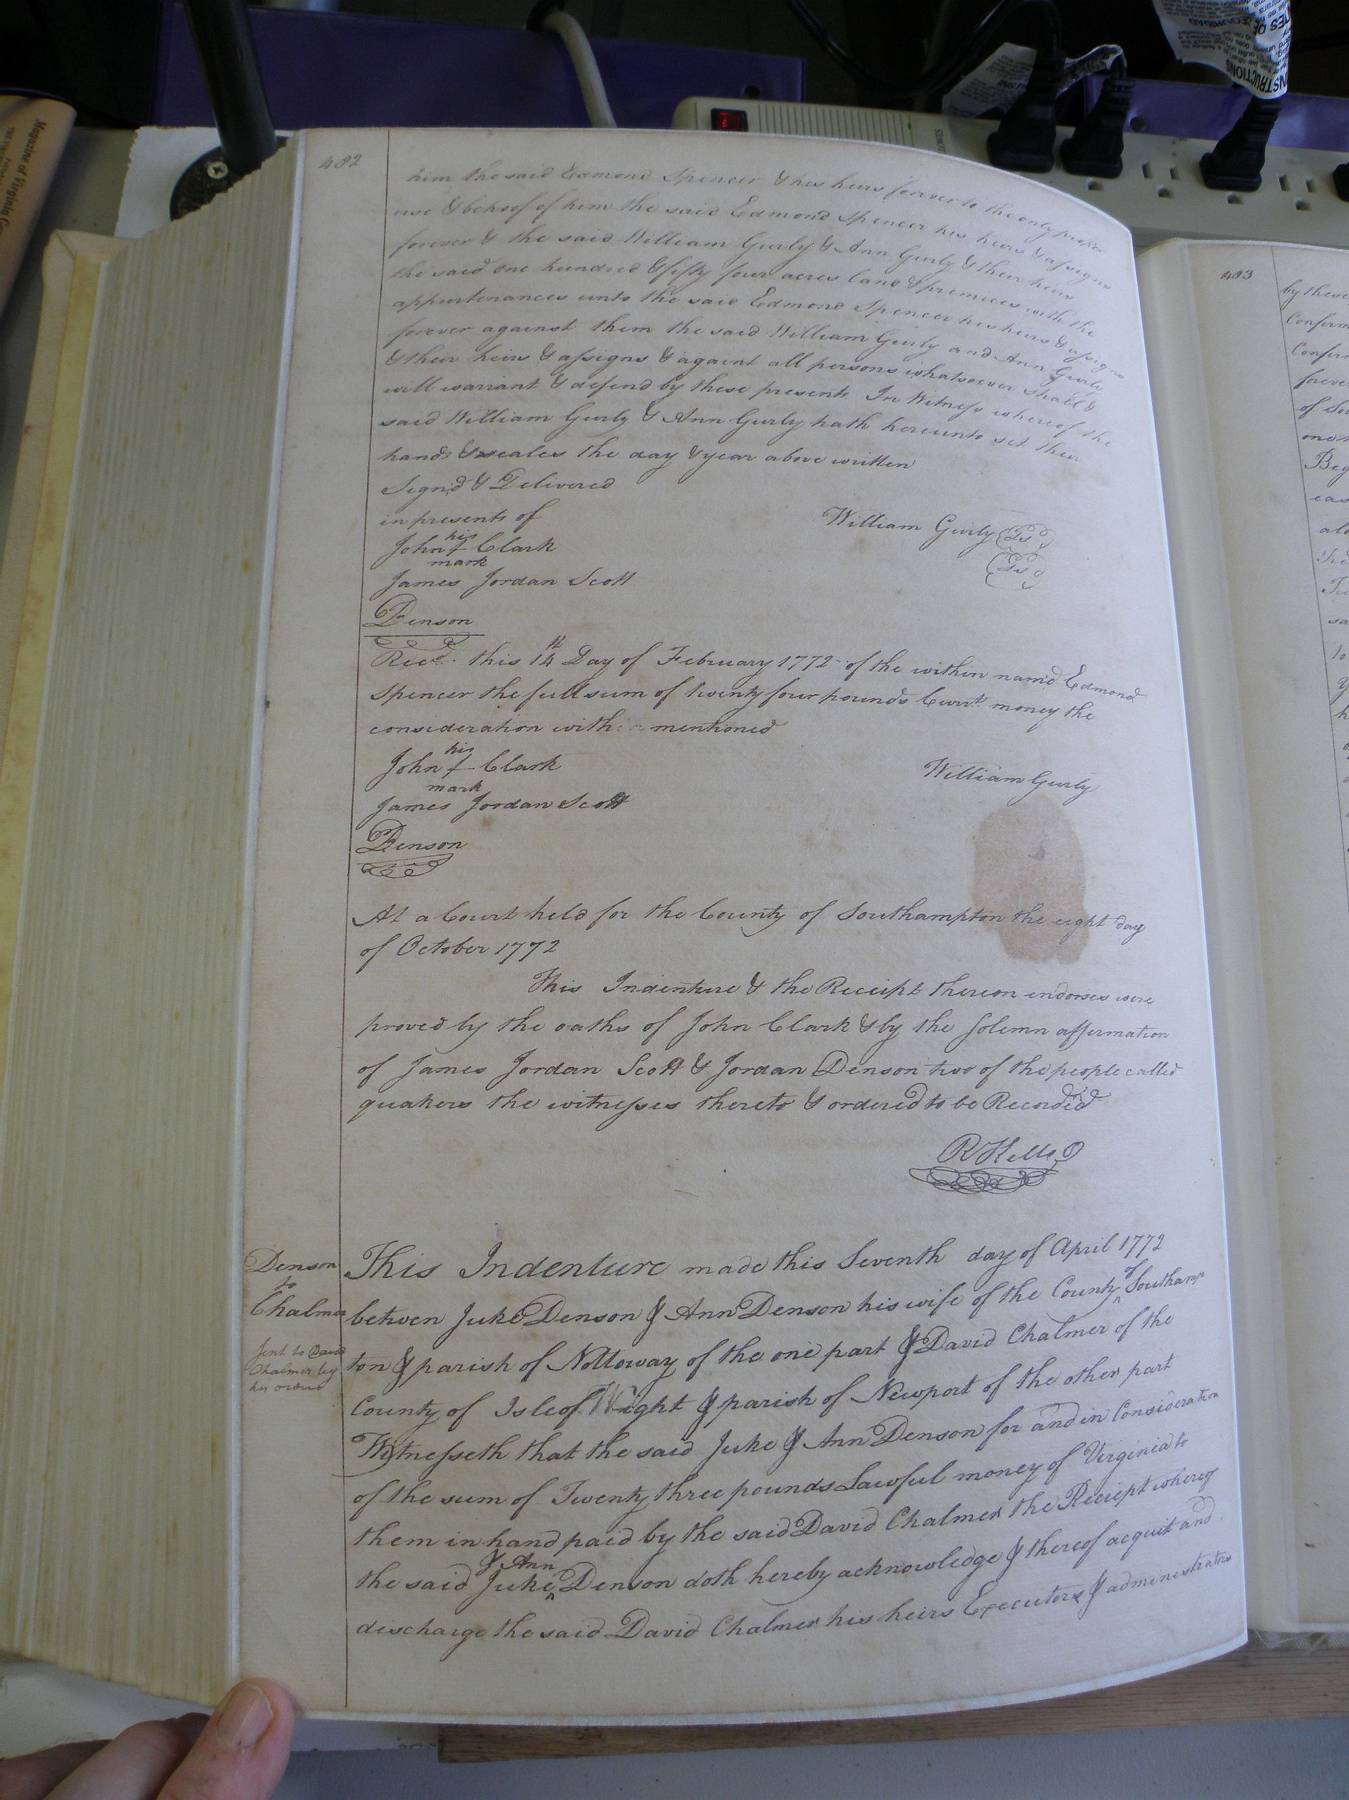 482
him the said Edmond Spencer & his heirs forever to the only proper
use & behoof of him the said Edmond Spencer his heirs & assigns
forever & the said William Gurly & Ann Gurly & their heirs
the said one hundred & fifty four acres land & premices with the
appurtenances unto the said Edmond Spencer his heirs & assigns
forever against them the said William Gurly and Ann Gurly
& their heirs & assigns & against all persons whatsoever shall &
will warrant & defend by these presents In Witness whereof the
said William Gurly & Ann Gurly hath hereunto set their
hands & seales the day & year above written
Signd & Delivered
in presents of
William Gurly Ls
his
John f Clark
mark
Ls
James Jordan Scott
Denson
Recd. this 14th Day of February 1772 of the within named Edmond
Spencer the full sum of twenty four pounds Currt. money the
consideration within mentioned
his
John f Clark
mark
William Gurly
James Jordan Scott
Denson
At a Court held for the County of Southampton the eight day
of October 1772
This Indenture & the Receipt thereon endorsed were
proved by the oaths of John Clark & by the solemn affermation
of James Jordan Scott & Jordan Denson two of the people called
quakers the witnesses thereto & ordered to be Recorded
R Kello
Denson
to
Chalmer
sent to David
Chalmer by
his order
This Indenture made this Seventh day of April 1772
betwen Juke Denson & Ann Denson his wife of the County of Southamp
ton & parish of Nottoway of the one part & David Chalmer of the
County of Isle of Wight & parish of Newport of the other part
Wytnesseth that the said Juke & Ann Denson for and in Consideration
of the sum of Twenty three pounds Lawful money of Virginia to
them in hand paid by the said David Chalmer the Receipt whereof
the said Juke & Ann Denson doth hereby acknowledge & thereof acquit and
discharge the said David Chalmer his heirs Executors & administrators
483
by these
Confirm
Confir
forever
of So
one
Beg
eas
alo
sa
to
INSTRUCTIONS
Magazine of Virginia